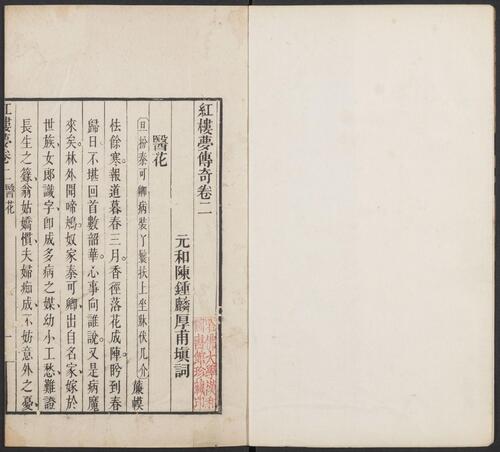 紅樓夢傳奇卷二
元和陳鍾麟厚甫塡詞
醫花
旦扮秦可卿病裝丫鬟扶上坐牀伏几介 簾幙
怯餘寒報道暮春三月香徑落花成陣盻到春
歸日不堪回首數韶華心事向誰說又是病魔
來矣林外聞啼鴂奴家秦可卿出自名家嫁於
世族女郎識字卽成多病之媒幼小工愁難證
長生之籙翁姑嬌慣夫婦痴成不妨意外之憂
紅樓夢卷二醫花
一
哈佛大學漢和
圖書館珍藏印